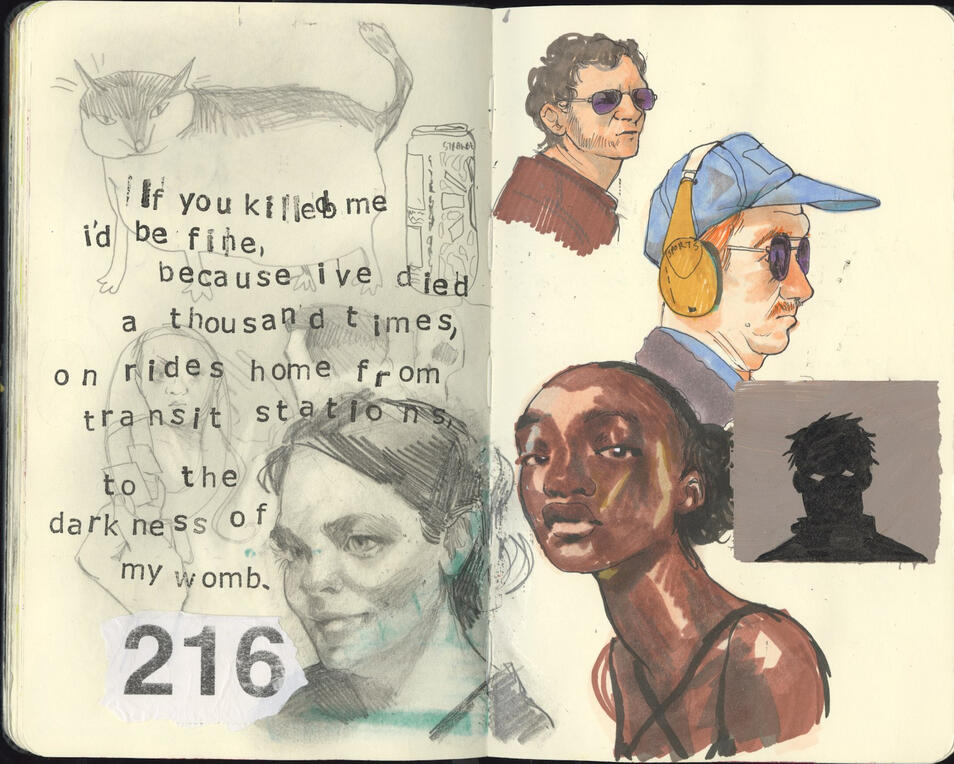 If you killed me
i'd be fine,
because ive died
a thousand times,
on rides home from
transit stations,
to the
darkness of
my womb.
216